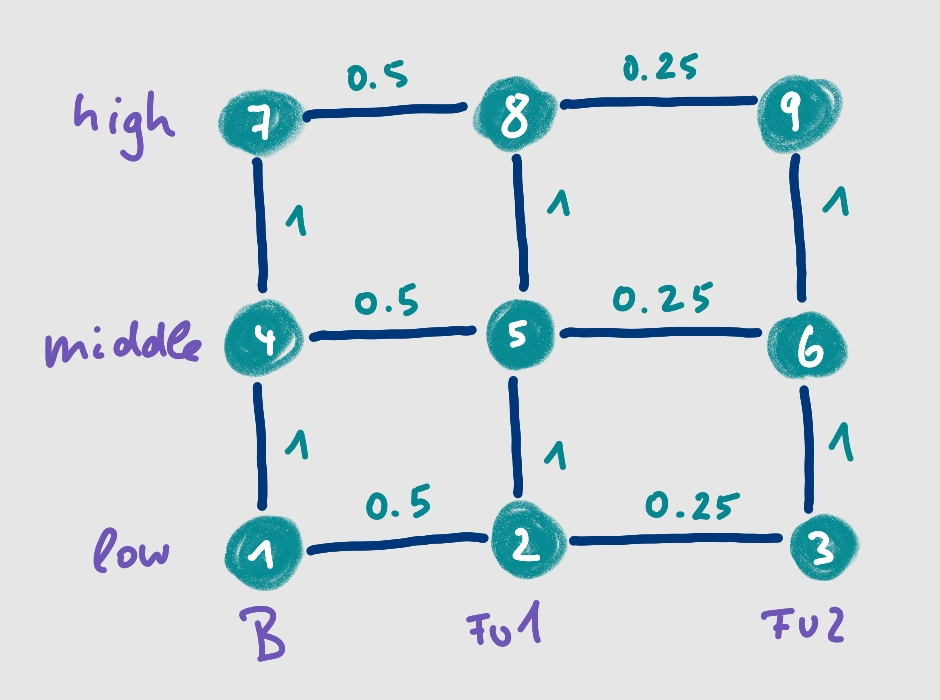 0.5 0.25
high 7 8 9
1 1 1
0.5 0.25
middle 4 5 6
1 1 1
0.5 0.25
low 1 2 3
B Fu1 Fu2